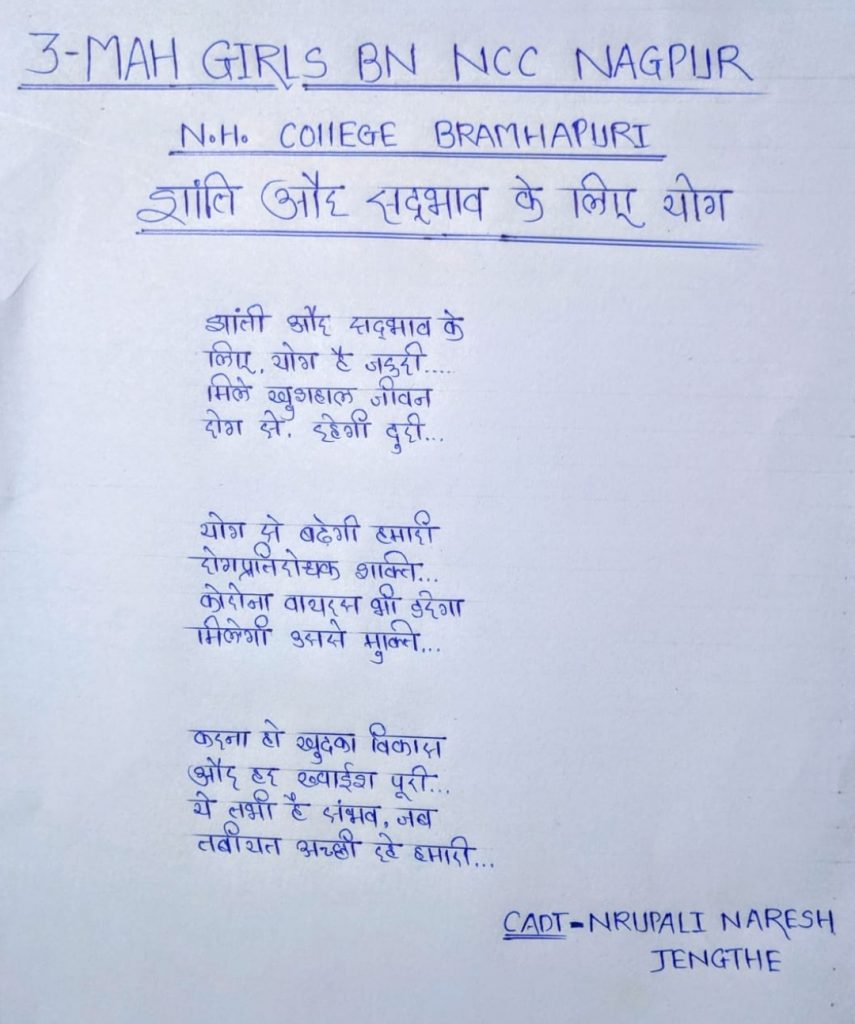 3-MAH GIRLS BN NCC NAGPUR
N.H. COllEGE BRAMHAPURI
शांति और सद्भाव के लिए योग
शांती और सद्भाव के
लिए, योग है जरुरी.....
मिले खुशहाल जीवन
रोग से, रहेगी दुरी...
योग से बढ़ेगी हमारी
रोगप्रतिरोधक शक्ति...
कोरोना वायरस भी डरेगा
मिलेगी उससे मुक्ति...
करना हो खुदका विकास
और हर ख्वाईश पूरी...
ये तभी है संभव, जब
तबीयत अच्छी रहे हमारी...
CADT-NRUPALI NARESH
JENGTHE